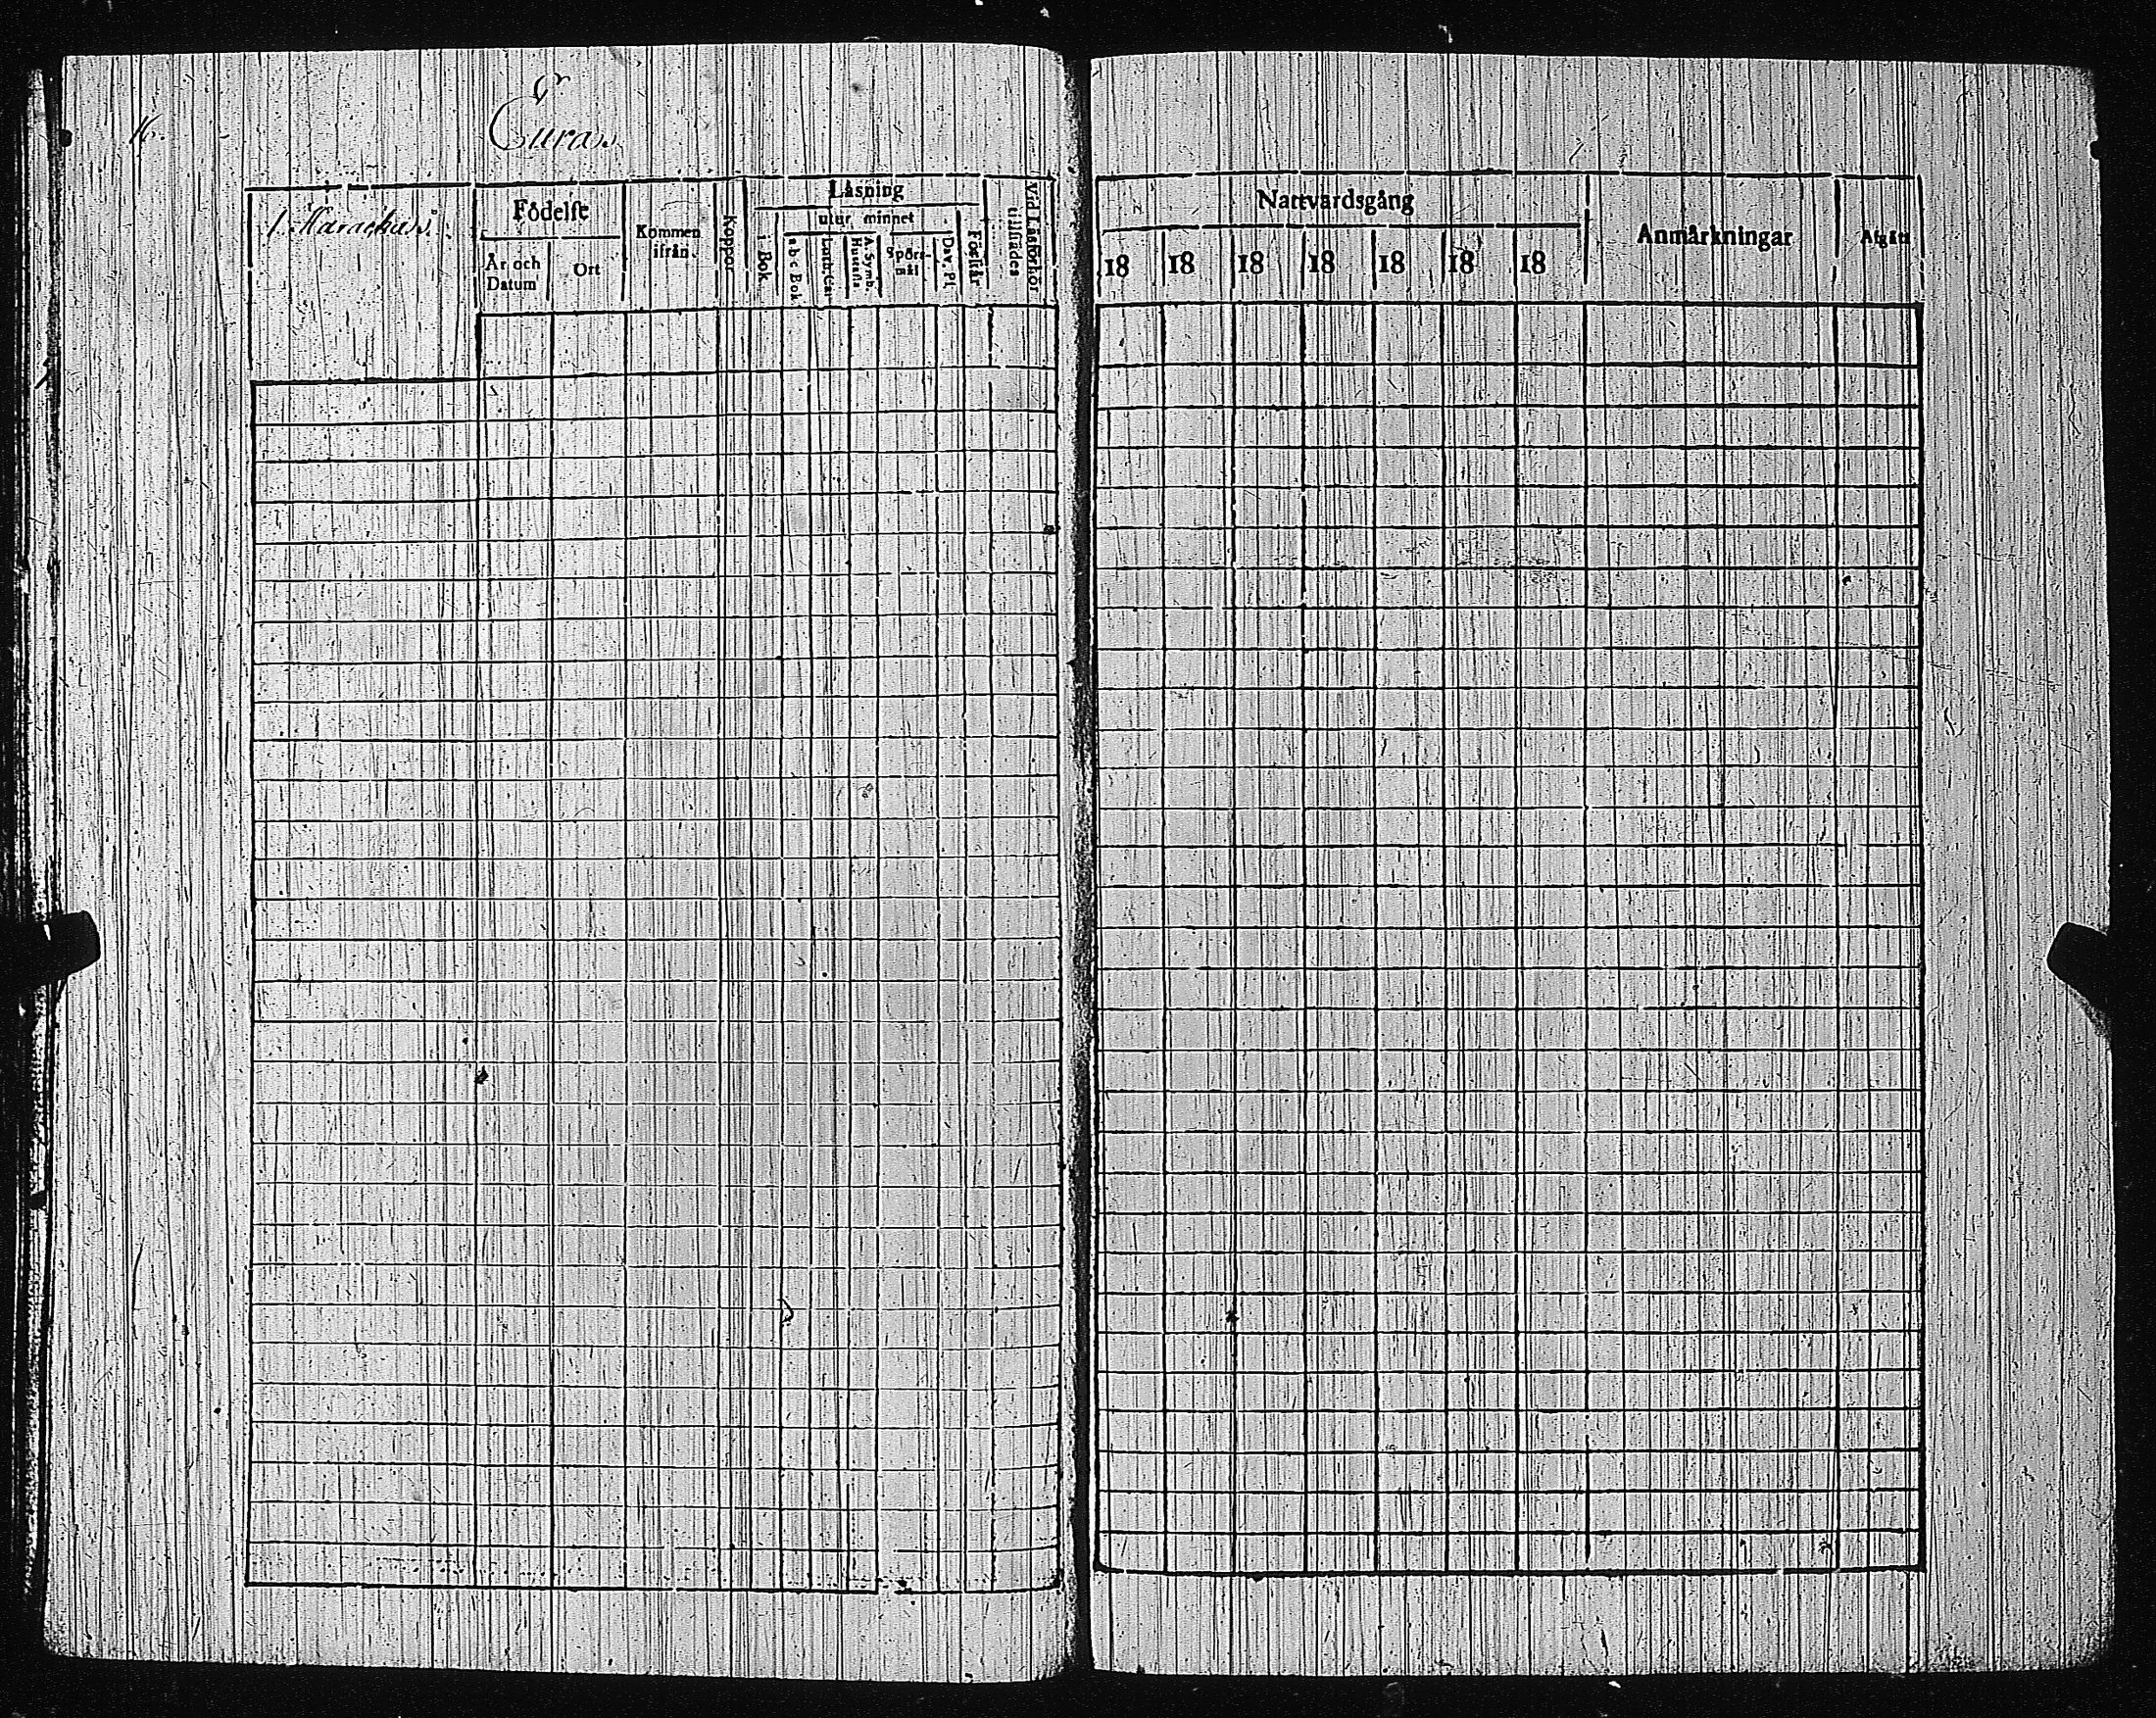 16.
Eura
Födelse
År och Datum
Ort
Kommen ifrån.
Koppor
Läsning
i Bok
utur minnet
a b c Bok
Luth. Cat.
A. Symb. Hustafla
Spörs-mål
Dav. Ps.
Förstår
Vid Läsförhör tillstädes
Nattvardsgång
18 18 18 18 18 18 18
Anmärkningar
Afgått